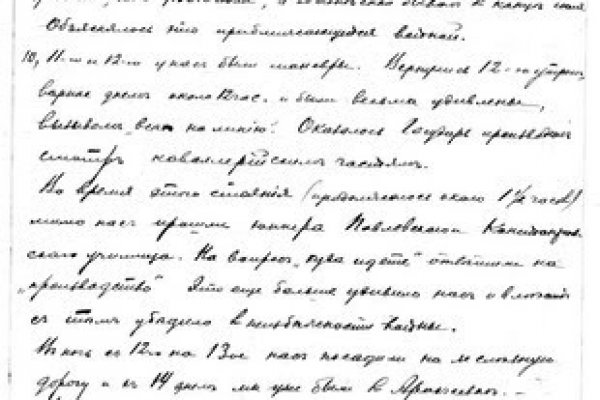 Объяснялось это приближающейся войной.
10, 11-го и 12-го у нас были маневры. Вернулись 12-го утром,
вернее днем около 12 час. и были весьма удивлены,
вызовом "всех на линию". Оказалось Государь производит
смотр кавалерийским частям.
Во время этого стояния (продолжалось около 1½ часов)
мимо нас прошли юнкера Павловского
училища. На вопрос "куда идете" ответили на
"производство". Это еще больше удивило нас и
с тем убедило в неизбежности войны.
В ночь с 12-го на 13-ое нас посадили на железную
дорогу и 14 днем мы уже были в